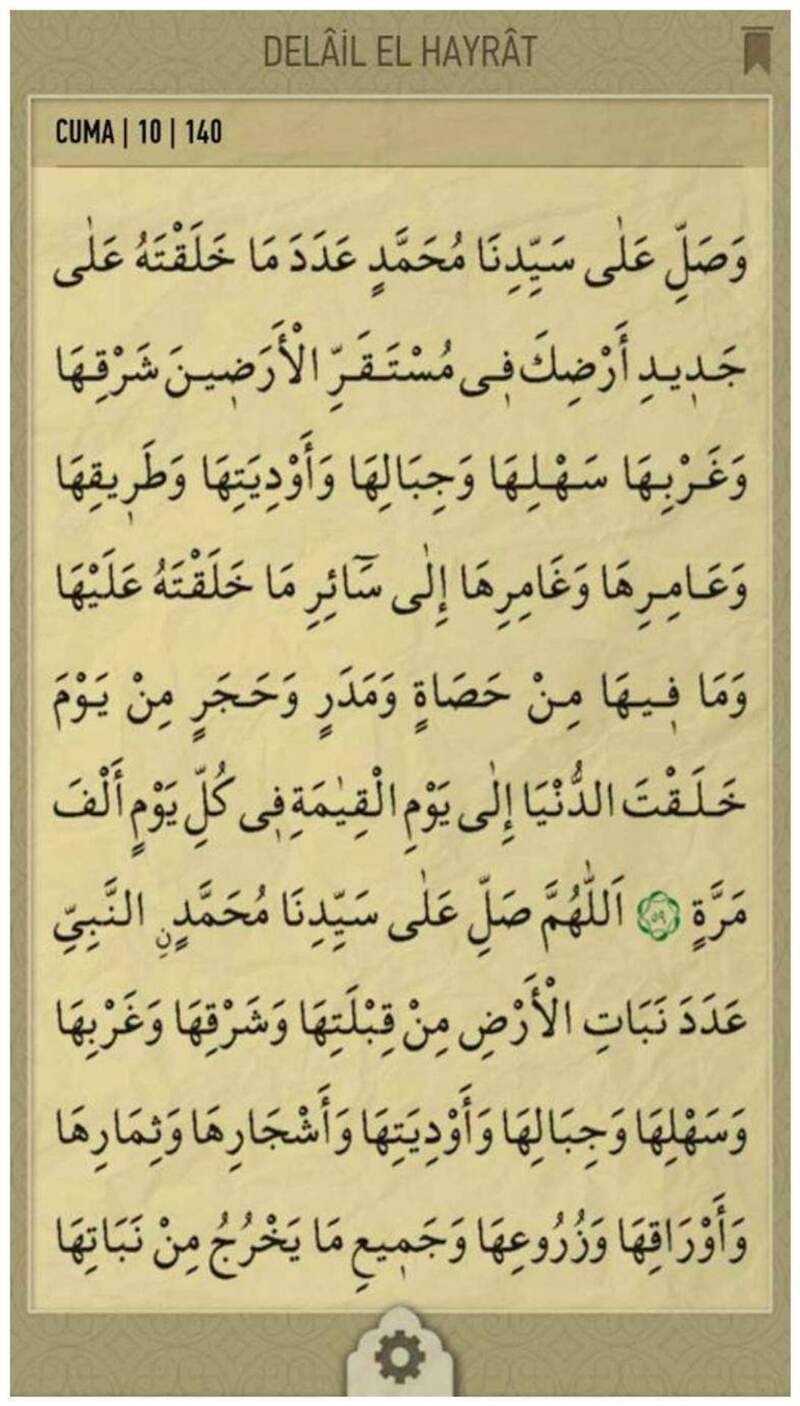 DELÂİL EL HAYRÂT
CUMA | 10 | 140
وَصَلِّ عَلٰى سَيِّدِنَا مُحَمَّدٍ عَدَدَ مَا خَلَقْتَهُ عَلٰى
جَدٖيدِ أَرْضِكَ فٖى مُسْتَقَرِّ الْأَرَضٖينَ شَرْقِهَا
وَغَرْبِهَا سَهْلِهَا وَجِبَالِهَا وَأَوْدِيَتِهَا وَطَرٖيقِهَا
وَعَامِرِهَا وَغَامِرِهَا إِلٰى سَٓائِرِ مَا خَلَقْتَهُ عَلَيْهَا
وَمَا فٖيهَا مِنْ حَصَاةٍ وَمَدَرٍ وَحَجَرٍ مِنْ يَوْمَ
خَلَقْتَ الدُّنْيَا إِلٰى يَوْمِ الْقِيٰمَةِ فٖى كُلِّ يَوْمٍ أَلْفَ
مَرَّةٍ ٥٩ اَللّٰهُمَّ صَلِّ عَلٰى سَيِّدِنَا مُحَمَّدٍ نِ النَّبِيِّ
عَدَدَ نَبَاتِ الْأَرْضِ مِنْ قِبْلَتِهَا وَشَرْقِهَا وَغَرْبِهَا
وَسَهْلِهَا وَجِبَالِهَا وَأَوْدِيَتِهَا وَأَشْجَارِهَا وَثِمَارِهَا
وَأَوْرَاقِهَا وَزُرُوعِهَا وَجَمٖيعِ مَا يَخْرُجُ مِنْ نَبَاتِهَا